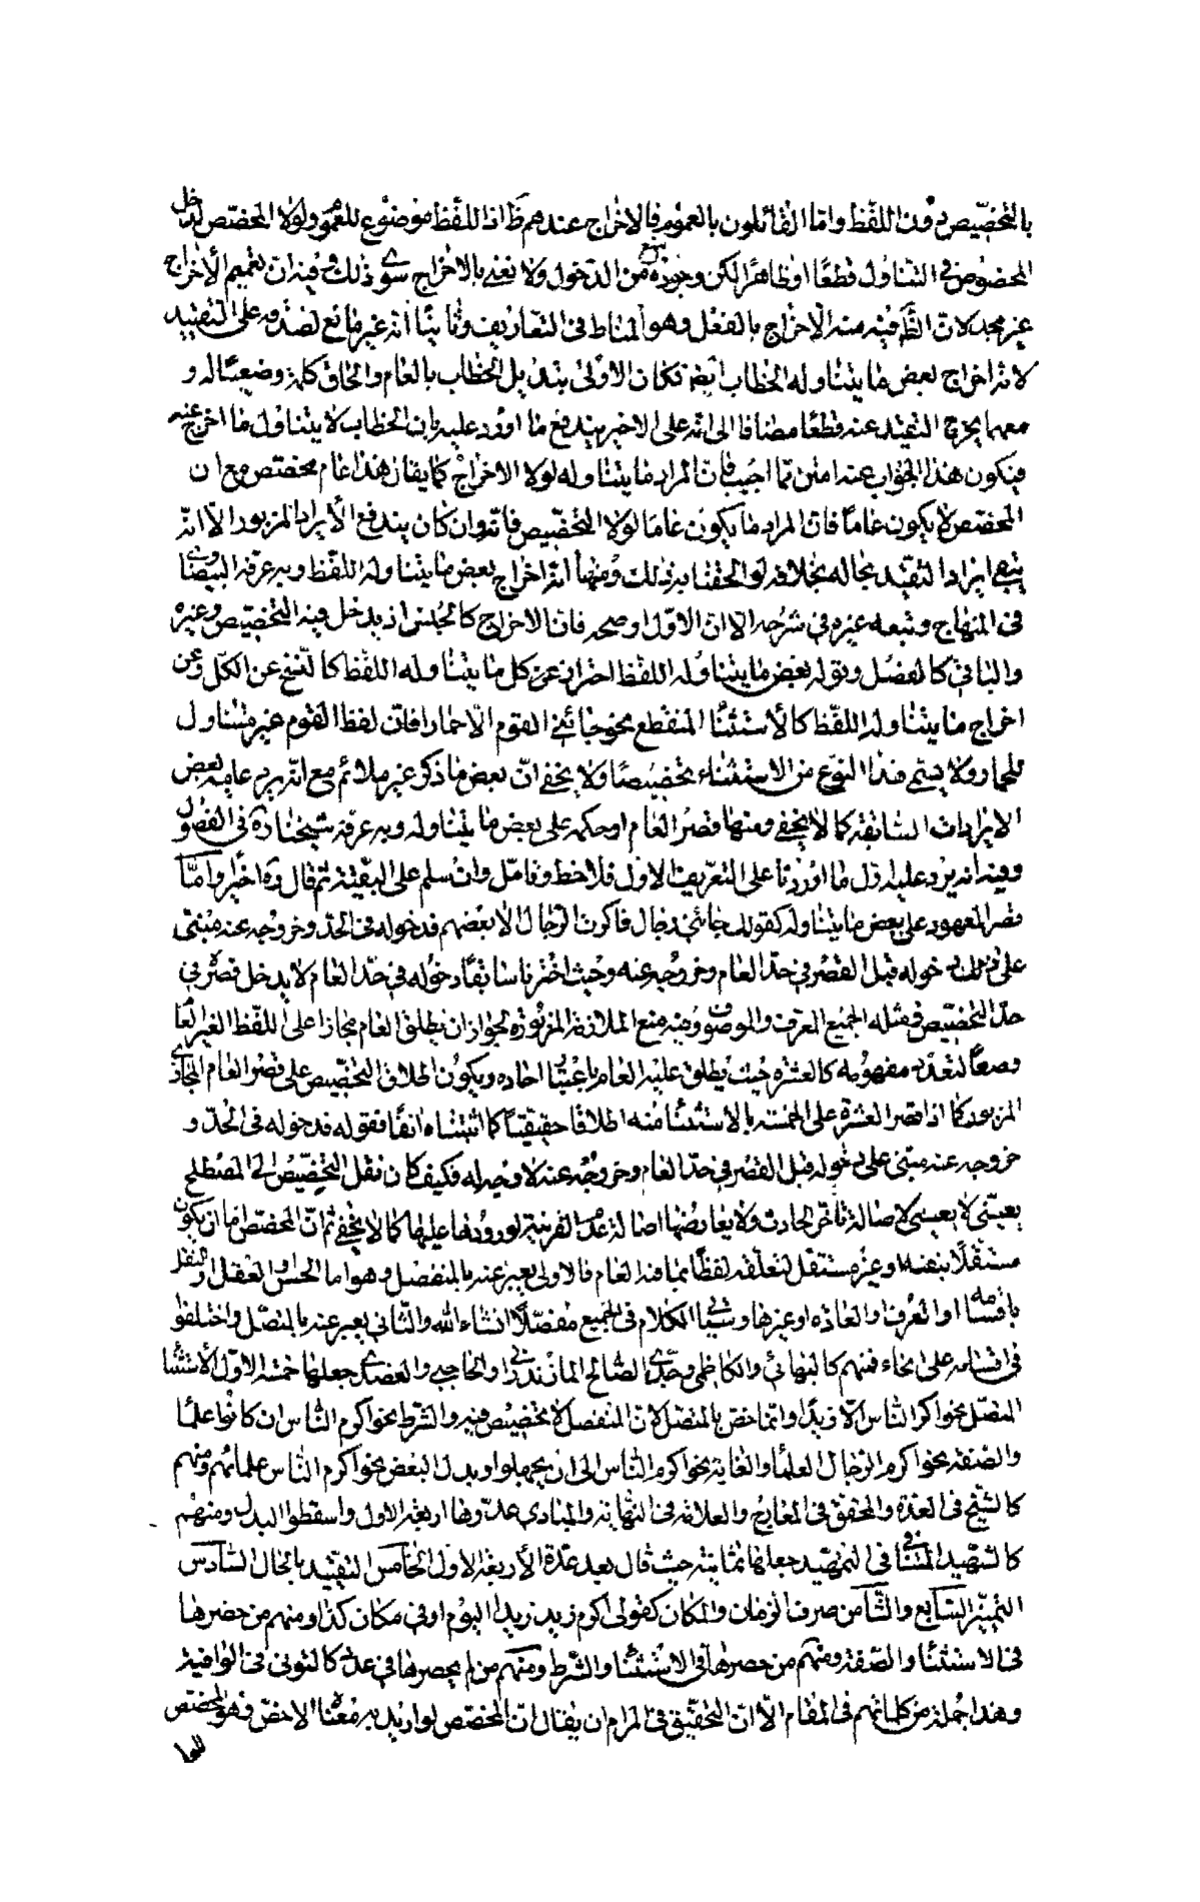 بالتخصيص دون اللفظ واما القائلون بالعموم فالاخراج عندهم ظ اذ اللفظ موضوع للعموم ولولا المخصص لدخل
المخصوص في التناول قطعًا او ظاهرًا لكن وجوده منع من الدخول ولا نعنى بالاخراج سوى ذلك وفيه ان تعميم الاخراج
غير مجد لان الظ فيه منه الاخراج بالفعل وهو المناط فى التعاريف وثانيًا انه غير مانع لصدقه على التقييد
لانه اخراج لبعض ما يتناوله الخطاب ايضا فكان الاولى تبديل الخطاب بالعام والحاق كلمة وضعيًا له و
معهما يخرج التقييد عنه قطعًا مضافا الى انه على الاخير يندفع ما اورد عليه بان الخطاب لا يتناول ما اخرج عنه
فيكون هذا الجواب عنه امتن مما اجيب بان المراد ما يتناوله لولا الاخراج كما يقال هذا عام مخصص مع ان
المخصص لا يكون عامًا فان المراد ما يكون عامًا لولا التخصيص فانه وان كان يندفع الايراد المزبور الا انه
يبقى ايراد التقييد بحاله بخلافه لو الحقنا به ذلك ومنها انه اخراج بعض ما يتناوله اللفظ وبه عرفه البيضاوى
فى المنهاج وتبعه غيره في شرحه الا ان الاول اوضح فان الاخراج كالجنس اذ يدخل فيه التخصيص وغيره
والباقى كالفصل وقوله بعض ما يتناوله اللفظ احتراز عن كل ما يتناوله اللفظ كالنسخ عن الكل وعن
اخراج ما يتناوله اللفظ كالاستثناء المنقطع نحو جائنى القوم الا حمارا فان لفظ القوم غير متناول
للحمار ولا يسمى هذا النوع من الاستثناء تخصيصًا ولا يخفى ان بعض ما ذكر غير ملائم مع انه يرد عليه بعض
الايرادات السابقة كما لا يخفى ومنها قصر العام او حكمه على بعض ما يتناوله وبه عرفه شيخنا ره في الفصول
وفيه انه يرد عليه اول ما اوردنا على التعريف الاول فلاحظ وتامل وان سلم على البقية ثم قال ره اخيرا واما
قصر المعهود على بعض ما يتناوله كقولك جائنى رجال فاكرمت الرجال الا بعضهم فدخوله فى الحد وخروجه عنه مبنى
على ذلك دخوله قبل القصر في حد العام وخروجه عنه وحيث اخترنا سابقًا دخوله في حد العام لا يدخل قصره في
حد التخصيص فمثله الجميع المعرف والموصوف وفيه منع الملازمة المزبورة لجواز ان يطلق العام مجازا على اللفظ الغير العام
وضعًا لتعدد مفهومه كالعشرة حيث يطلق عليه العام باعتبار احاده ويكون اطلاق التخصيص على قصر العام المجازى
المزبور كما اذا قصر العشرة على الخمسة بالاستثناء منه اطلاقا حقيقيًا كما اثبتناه انفًا فقوله فدخوله فى الحد و
خروجه عنه مبنى على دخوله قبل القصر في حد العام وخروجه عنه لا وجه له فكيف كان نقل التخصيص الى المصطلح
تعينى لا تعيينى لاصالة تاخر الحادث ولا يعارضها اصالة عدم القرينة لورودها عليها كما لا يخفى ثم ان المخصص اما ان يكون
مستقلًا بنفسه او غير مستقل لتعلقه لفظًا بما افاد العام فالاولى يعبر عنه بالمنفصل وهو اما الحس او العقل او النقل
باقسامه او العرف او العادة او غيرها وسيأتى الكلام فى الجميع مفصلًا انشاء الله والثاني يعبر عنه بالمتصل واختلفوا
فى اقسامه على انحاء فمنهم كالبهائى والكاظمى وجدى الصالح المازندرانى والحاجبى والعضدى جعلها خمسة الاول الاستثناء
المتصل نحو اكرم الناس الا زيدًا وانما خص بالمتصل لان المنفصل لا تخصيص فيه والشرط نحو اكرم الناس ان كانوا علماء
والصفة نحو اكرم الرجال العلماء والغاية نحو اكرم الناس الى ان يجهلوا وبدل البعض نحو اكرم الناس علمائهم ومنهم
كالشيخ فى العدة والمحقق فى المعارج والعلامة فى النهاية والمبادى عدوها اربعة الاول واسقطوا البدل ومنهم
كالشهيد الثانى فى التمهيد جعلها ثمانية حيث قال بعد عدة الاربعة الاول الخامس التقييد بالحال السادس
التمييز السابع والثامن ظرف الزمان والمكان كقولى اكرم زيد زيدا اليوم او في مكان كذا ومنهم من حصرها
فى الاستثناء والصفة ومنهم من حصرها فى الاستثناء والشرط ومنهم من لم يحصرها في عدد كالتونى فى الوافية
وهذا جملة من كلماتهم فى المقام الا ان التحقيق فى المرام ان يقال ان المخصص لو اريد به معناه الاخص فهو المخصص